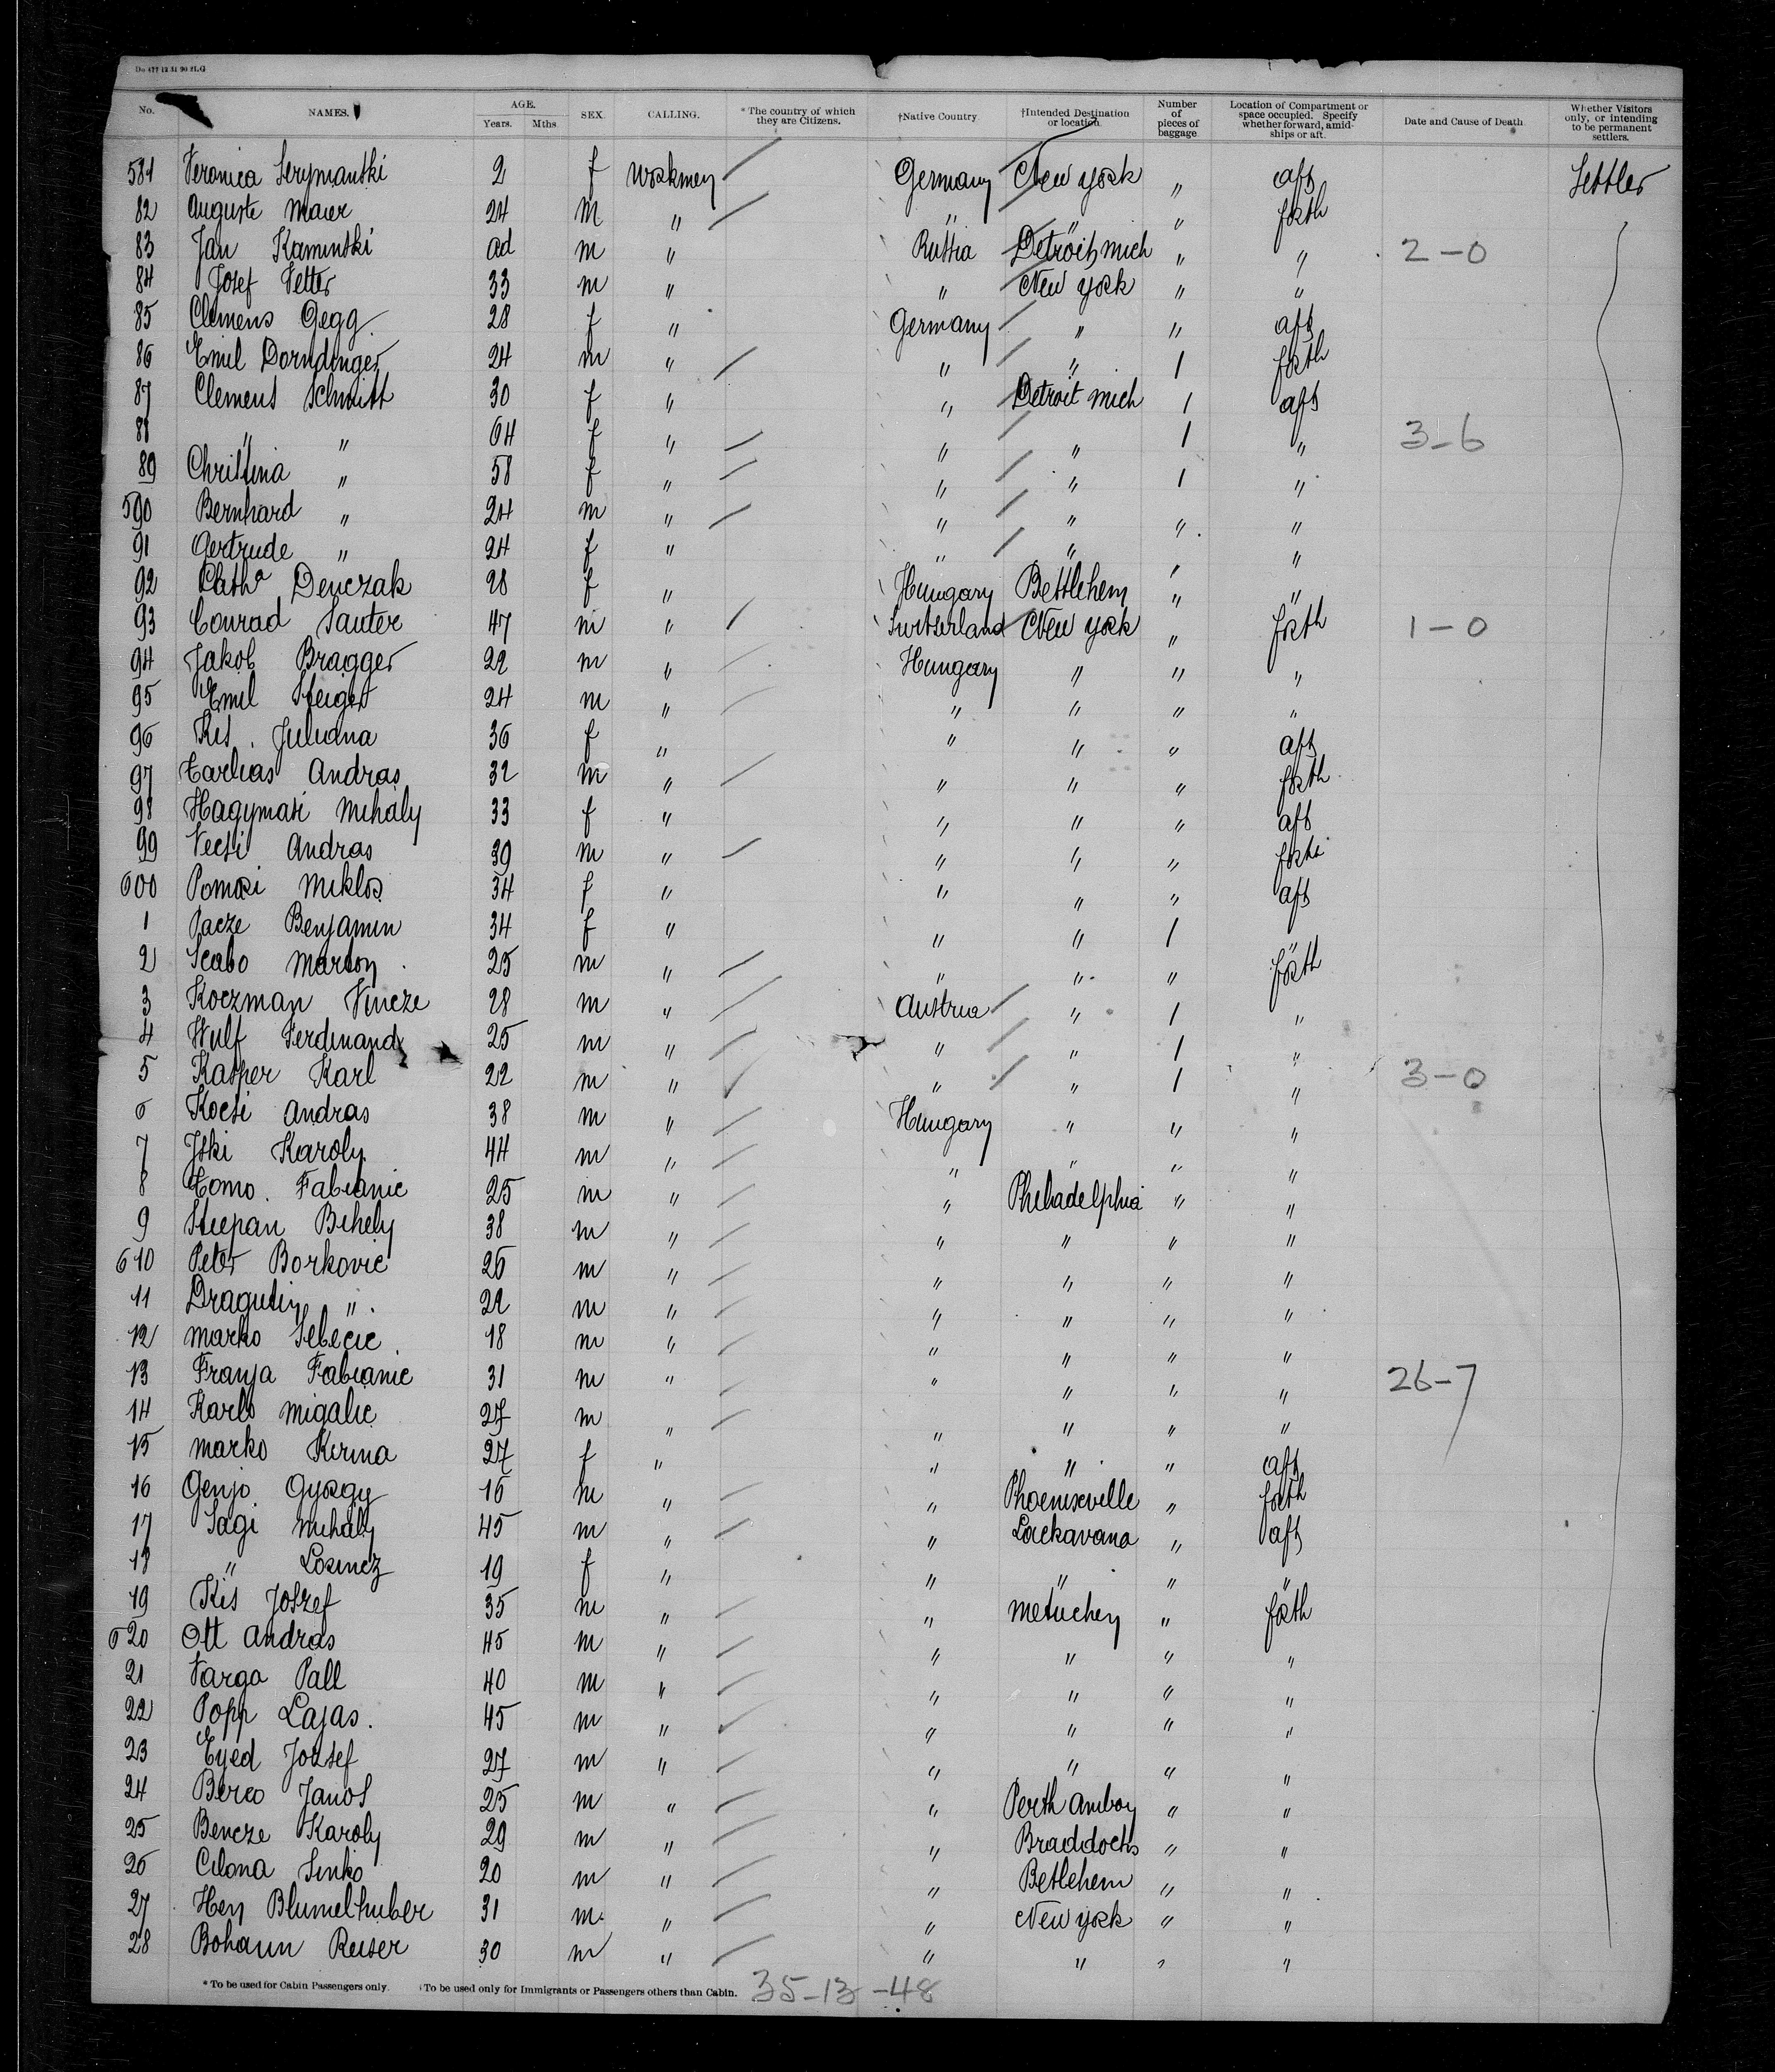 Do 477 12 31 90 H.G
No. NAMES. AGE. Years. Mths. SEX. CALLING. * The country of which they are Citizens. †Native Country †Intended Destination or location. Number of pieces of baggage Location of Compartment or space occupied. Specify whether forward, amidships or aft. Date and Cause of Death Whether Visitors only, or intending to be permanent settlers.
581 Veronica Serymanski 2 f Workmen Germany New York " aft Settler
82 Auguste Maier 24 m " " " " forth
83 Jan Kaminski ad m " Russia Detroit Mich " " 2-0
84 Josef Vetter 33 m " " New York " "
85 Clemens Gegg 28 f " Germany " " aft
86 Emil Dorndinger 24 m " " " 1 forth
87 Clemens Schmitt 30 f " " Detroit Mich 1 aft
88 " " 64 f " " " 1 " 3-6
89 Christina " 58 f " " " 1 "
590 Bernhard " 24 m " " " " "
91 Gertrude " 24 f " " " " "
92 Catha Denczak 28 f " Hungary Bettlehem " "
93 Conrad Sauter 47 m " Switserland New York " forth 1-0
94 Jakob Bragger 22 m " Hungary " " "
95 Emil Steiger 24 m " " " " "
96 Kis Juliana 36 f " " " " aft
97 Carlias Andras 32 m " " " " forth
98 Hagymasi Mihaly 33 f " " " " aft
99 Vecsi Andras 39 m " " " " forth
600 Pomozi Miklos 34 f " " " " aft
1 Pacze Benjamin 34 f " " " 1 "
2 Scabo Marton 25 m " " " " forth
3 Koczman Vincze 28 m " Austria " 1 "
4 Wulf Ferdinand 25 m " " " 1 "
5 Kasper Karl 22 m " " " 1 " 3-0
6 Kocsi Andras 38 m " Hungary " " "
7 Iski Karoly 44 m " " " " "
8 Tomo Fabianic 25 m " " Philadelphia " "
9 Stiepan Bihely 38 m " " " " "
610 Peter Borkovic 26 m " " " " "
11 Dragutin " 22 m " " " " "
12 Marko Sebecic 18 m " " " " "
13 Franja Fabianic 31 m " " " " " 26-7
14 Karlo Migalic 27 m " " " " "
15 Marko Kirina 27 f " " " " aft
16 Genjo Gyorgy 16 m " " Phoenixville " forth
17 Sagi Mihaly 45 m " " Lackavana " aft
18 " Lorincz 19 f " " " " "
19 Kis Joszef 35 m " " Metuchen " forth
620 Ott Andras 45 m " " " " "
21 Varga Pall 40 m " " " " "
22 Popp Lajas 45 m " " " " "
23 Eyed Jozsef 27 m " " " " "
24 Berco Janos 25 m " " Perth Amboy " "
25 Bencze Karoly 29 m " " Braddocks " "
26 Cilona Sinko 20 m " " Betlehem " "
27 Hen Blumelhuber 31 m " " New York " "
28 Bohann Reiser 30 m " " " " "
* To be used for Cabin Passengers only. †To be used only for Immigrants or Passengers others than Cabin. 35-13-48